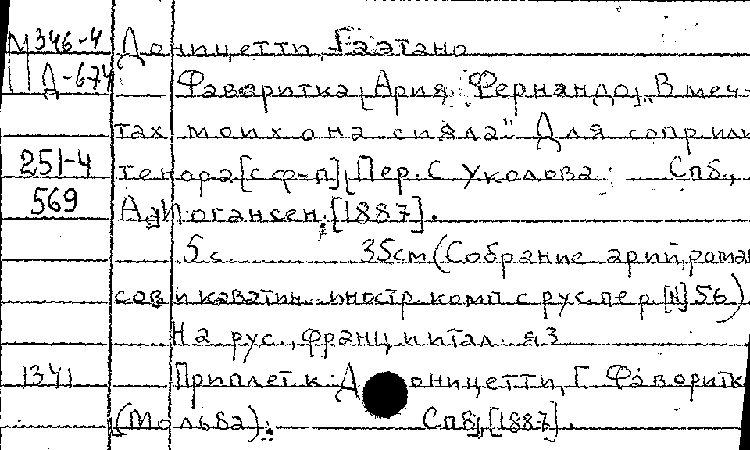 М 346-4 Доницетти, Гаэтано
Д-674 Фаваритка[Ария Фернандо]„В меч-
тах моих она сияла" Для сопр или
251-4 тенора[с ф-п]. Пер. С Уколова. Спб.,
569 А. Иогансен, [1887].
5 с 35см (Собрание арий, роман
сов и каватин иностр комп с рус. пер. [N] 56)
На рус., франц и итал яз
1341 Приплет к: Доницетти, Г. Фаворитк
(Мольба). СПб, [1887].